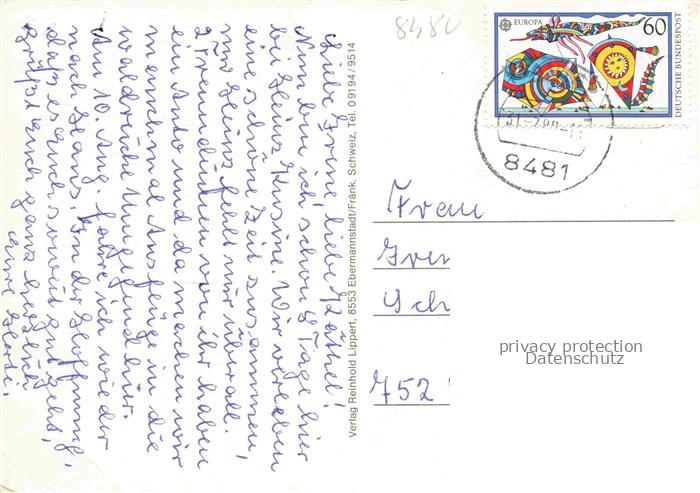 Liebe Irene, liebe Käthel!
Nun bin ich schon 8 Tage hier
bei Heinz Kusine. Wir verleben
eine schöne Zeit zusammen,
nur Heinz fehlt mir überall.
2 Freundinnen von ihr haben
ein Auto und da machen wir
manchmal Ausflüge in die
waldreiche Umgegend hier.
Am 10. Aug. fahre ich wieder
nach Haus. In der Hoffnung,
daß es Euch soweit gut geht,
grüßt Euch ganz herzlich
Eure
Verlag Reinhold Lippert, 8553 Ebermannstadt/Fränk. Schweiz, Tel. 0 91 94 / 95 14
8480
EUROPA
60
DEUTSCHE BUNDESPOST
8481
Frau
Iren
Sch
752
privacy protection
Datenschutz